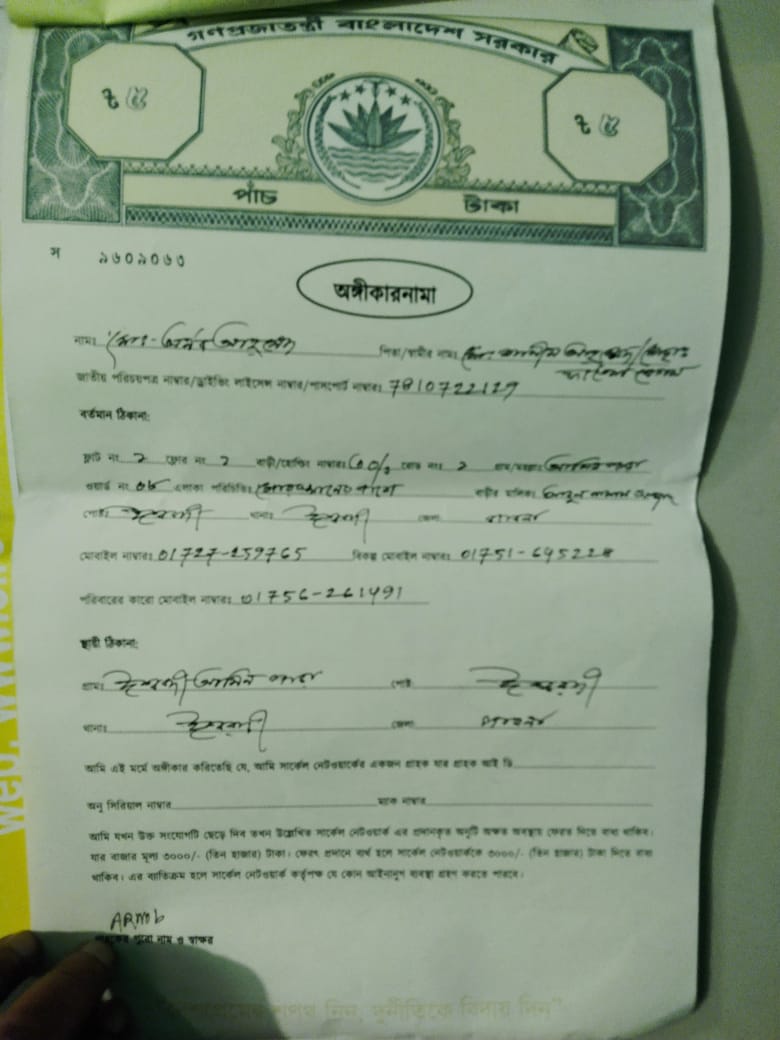 গণপ্রজাতন্ত্রী বাংলাদেশ সরকার
৳ ৫ ৳ ৫
পাঁচ টাকা
স ৯৬০৯০৬৩
অঙ্গীকারনামা
নামঃ মোঃ- অর্নব আহমেদ পিতা/স্বামীর নামঃ মোঃ
জাতীয় পরিচয়পত্র নাম্বার/ড্রাইভিং লাইসেন্স নাম্বার/পাসপোর্ট নাম্বারঃ 7810722129
বর্তমান ঠিকানা:
ফ্লাট নং ২ ফ্লোর নং ২ বাড়ী/হোল্ডিং নাম্বারঃ রোড নংঃ ২ গ্রাম/মহল্লাঃ আমিন পাড়া
ওয়ার্ড নং 08 এলাকা পরিচিতিঃ পাশে বাড়ীর মালিকঃ
পোষ্টঃ ঈশ্বরদী থানাঃ ঈশ্বরদী জেলা পাবনা
মোবাইল নাম্বারঃ 01727-259765 বিকল্প মোবাইল নাম্বারঃ 01751-695228
পরিবারের কারো মোবাইল নাম্বারঃ 01756-261491
স্থায়ী ঠিকানা:
গ্রামঃ ঈশ্বরদী আমিন পাড়া পোষ্ট ঈশ্বরদী
থানাঃ ঈশ্বরদী জেলা পাবনা
আমি এই মর্মে অঙ্গীকার করিতেছি যে, আমি সার্কেল নেটওয়ার্কের একজন গ্রাহক যার গ্রাহক আই ডি
অনু সিরিয়াল নাম্বার ম্যাক নাম্বার
আমি যখন উক্ত সংযোগটি ছেড়ে দিব তখন উল্লেখিত সার্কেল নেটওয়ার্ক এর প্রদানকৃত অনুটি অক্ষত অবস্থায় ফেরত দিতে বাধ্য থাকিব।
যার বাজার মূল্য ৩০০০/- (তিন হাজার) টাকা। ফেরৎ প্রদানে ব্যর্থ হলে সার্কেল নেটওয়ার্ককে ৩০০০/- (তিন হাজার) টাকা দিতে বাধ্য
থাকিব। এর ব্যতিক্রম হলে সার্কেল নেটওয়ার্ক কর্তৃপক্ষ যে কোন আইনানুগ ব্যবস্থা গ্রহণ করতে পারবে।
ARNOb
গ্রাহকের পুরো নাম ও স্বাক্ষর
"দেশপ্রেমের শপথ নিন, দুর্নীতিকে বিদায় দিন"